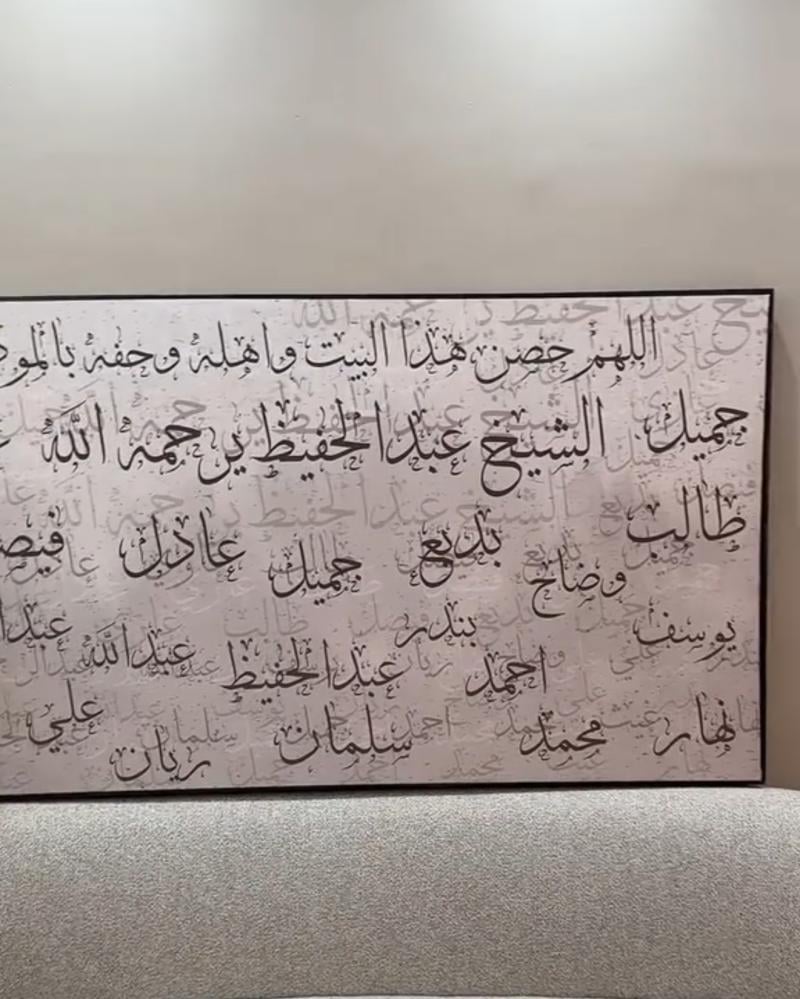 اللهم حصن هذا البيت واهله وحفه
جميل الشيخ عبدالحفيظ يرحمه الله
طالب وضاح بديع جميل عادل
يوسف بندر عبدالله
احمد عبدالحفيظ
نهار محمد سلمان علي
ريان